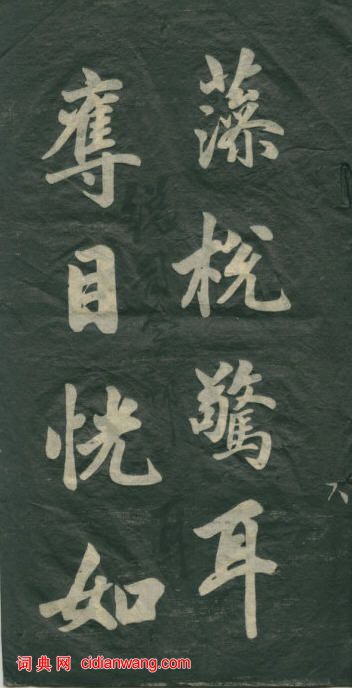 藻棁驚耳
奪目恍如
词典网 cidianwang.com